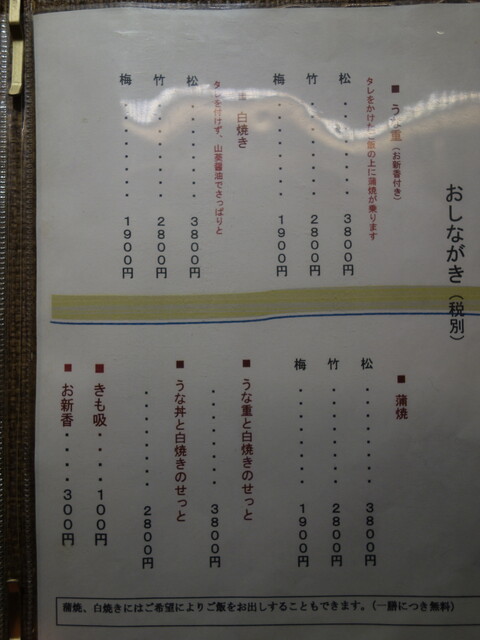 おしながき（税別）
■ うな重（お新香付き）
タレをかけたご飯の上に蒲焼が乗ります
松・・・・・・・・・3800円
竹・・・・・・・・・2800円
梅・・・・・・・・・1900円
■ 白焼き
タレを付けず、山葵醤油でさっぱりと
松・・・・・・・・・3800円
竹・・・・・・・・・2800円
梅・・・・・・・・・1900円
■ 蒲焼
松・・・・・・・・・3800円
竹・・・・・・・・・2800円
梅・・・・・・・・・1900円
■ うな重と白焼きのせっと
・・・・・・・・・3800円
■ うな丼と白焼きのせっと
・・・・・・・・・2800円
■ きも吸・・・・・100円
■ お新香・・・・・300円
蒲焼、白焼きにはご希望によりご飯をお出しすることもできます。（一膳につき無料）